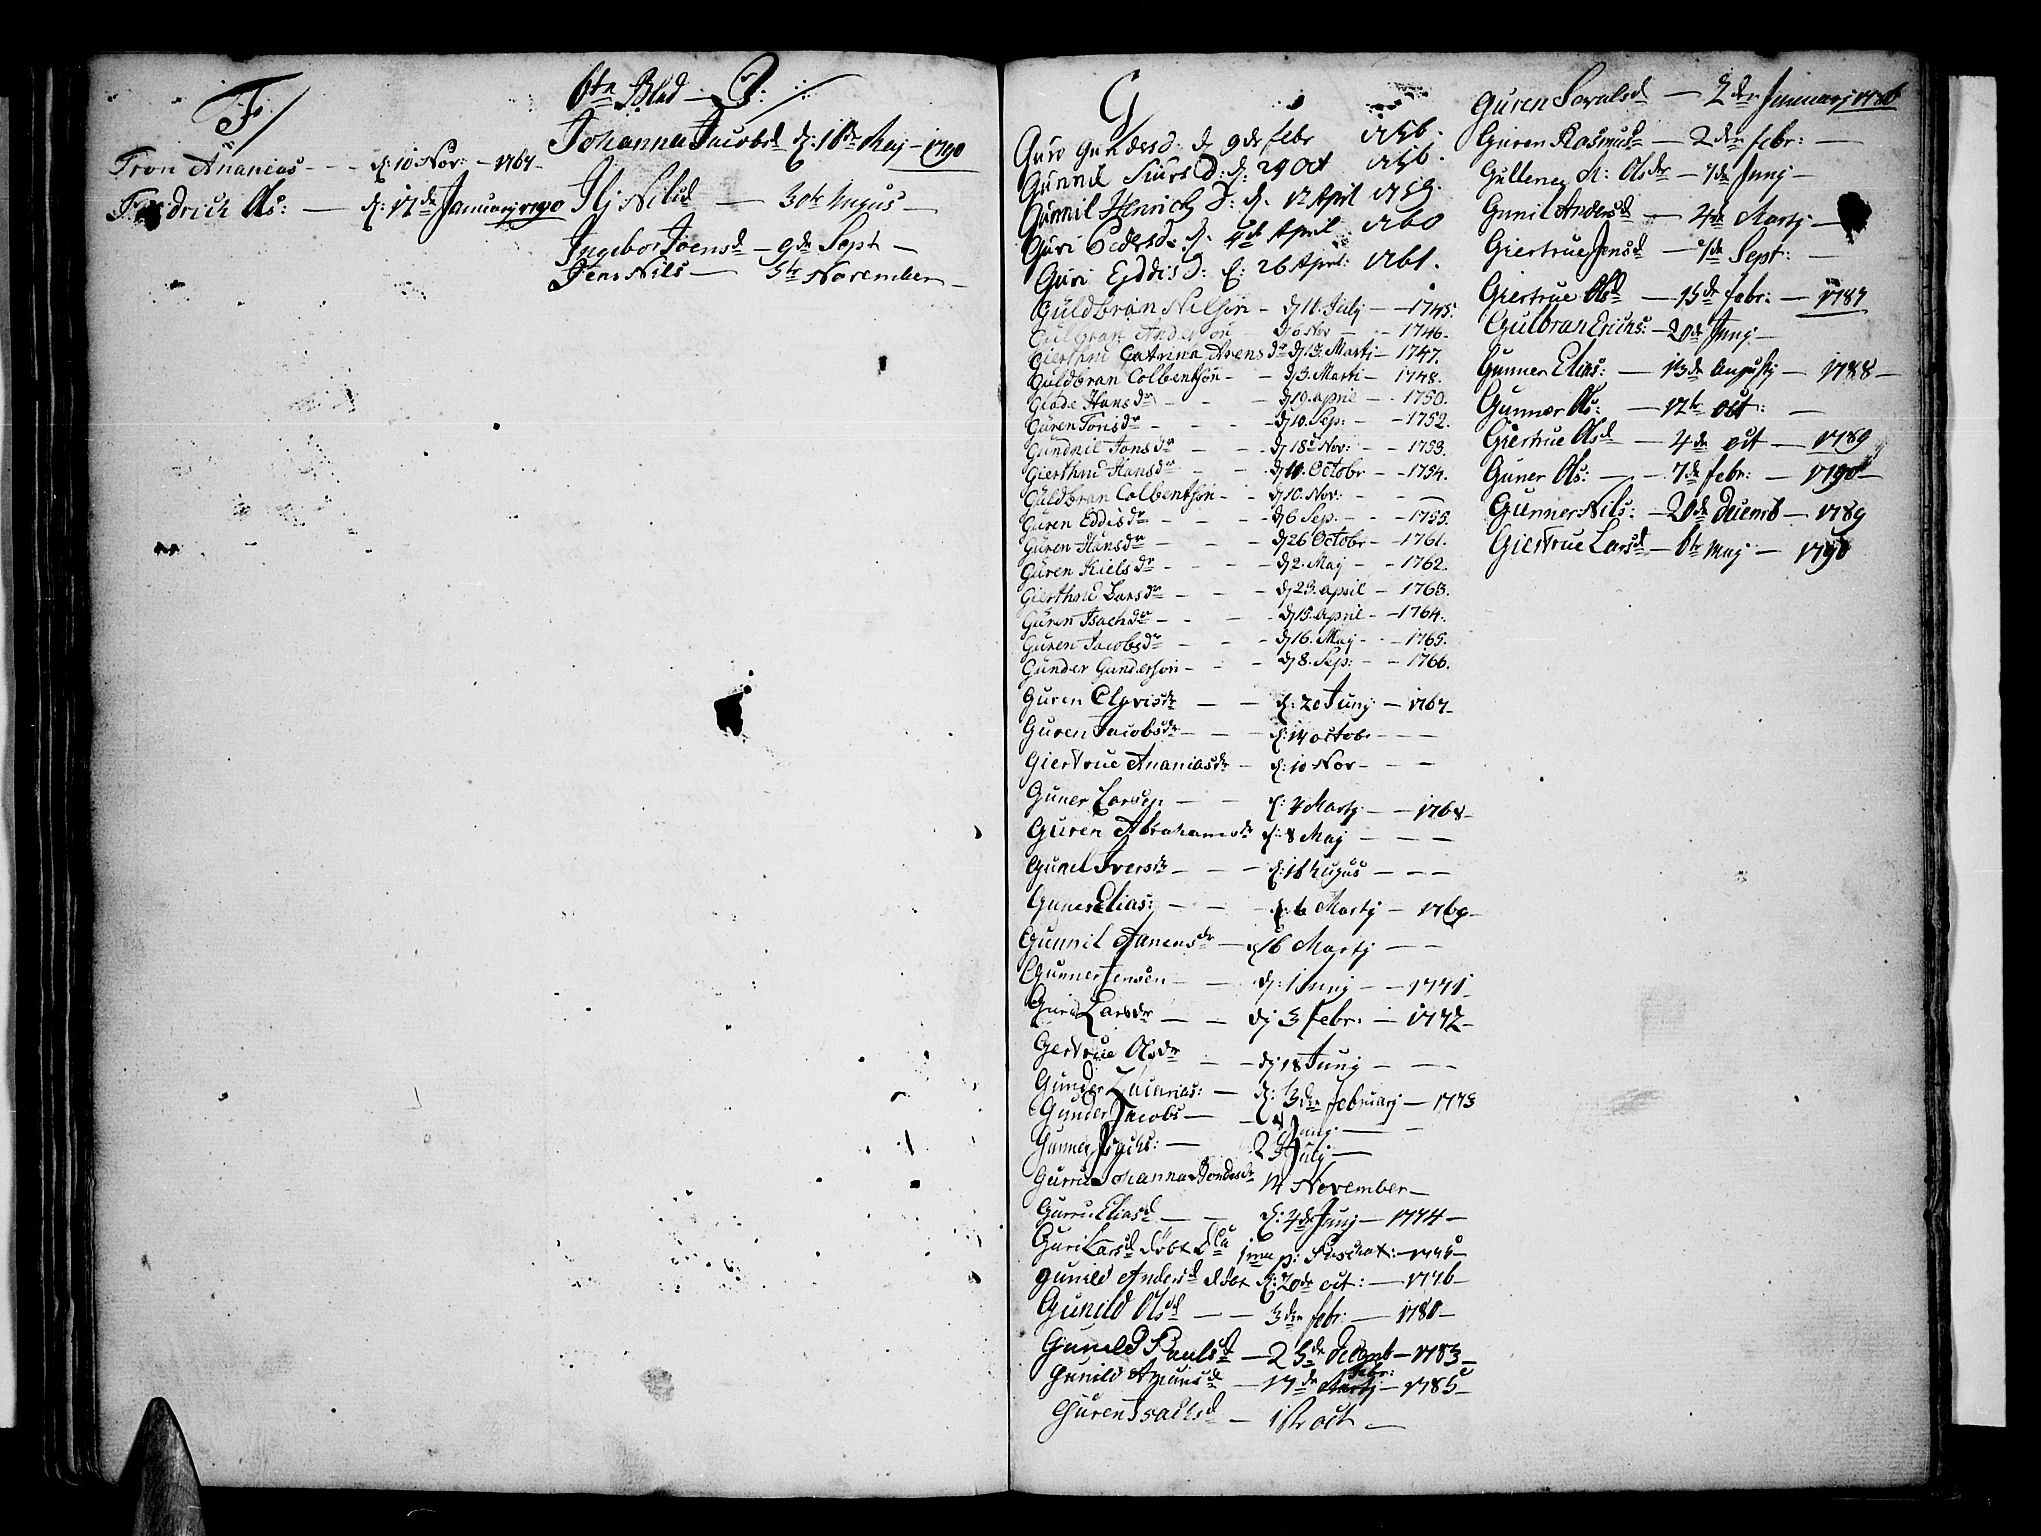 F.
Fron Ananias - - d: 10 Nov: - 1767-
Friedrich Ols: — d: 17de Januarj 1790
6te Blad - J:
Johanna Jacobsd d: 16de Maj - 1790
Ilj Nilsd — 30te Augus —
Ingebor Joensd - 9de Sept —
Jens Nils — 5te November —
G
Guro Gundersd: d: 9de febr 1756.
Gunnil Siursd: d: 29 Oct 1756.
Gunnil Henrichs D: d. 12 April 1759.
Guri Pedersd: d. 4de April 1760
Guri Eddis D: d: 26 April: 1761.
Guldbran Nilsøn - dj 11. Julj — 1745.
Gulbran Andersøn - dj 6 Nov — 1746.
Gierthrud Catrina Arensdr dj 13. Marti - 1747.
Guldbran Colbentsøn - - dj 3. Marti - 1748.
Giøde Hansdr - - - dj 19. april - - 1750.
Guren Tonisdr - - - dj 10. Sep: - - 1752.
Gundnil Jonsdr - - - dj 18de Nov: - - 1753.
Gierthrud Hansdr - - dj 11. Octobr - - 1754.
Guldbran Colbentsøn - - dj 10. Nov: - - —
Guren Eddisdr - - - dj 6 Sep. - - 1755.
Guren Hansdr - - - dj 26 Octobr - - 1761.
Guren Kielsdr - - - dj 2. Maj - - 1762.
Gierthrud Larsdr - - - dj 23. april - 1763.
Guren Isachdr - - - dj 15. april - - 1764.
Guren Jacobsdr - - - dj 16. Maj - - 1765.
Gunder Gundersøn - - - dj 8. Sep: - - 1766.
Guren Elgvisdr — — d: 20 Junj — 1767-
Guren Jacobsdr - - - d: 14 octobr - - -
Giertrue Ananiasdr - d: 10 Nov - - -
Guner Larsen — - d: 4 Martj — 1768-
Guren Abrahamsdr d: 8 Maj - - -
Gunel Iversdr - - - d: 16 Augus - - -
Guner Elias: - - - d: 6 Martj — 1769-
Gunnil Anensdr — d 16 Martj - -
Gunner Jensen - - dj: 1 Junj - - 1771-
Guri Larsdr — — dj 3 febr: - 1772-
Gertrue Olsdr — — dj 18 Junj - - -
Gunder Zacarias: — d: 3die februarj — 1773
Gunder Jacobs — Junj —
Gunner Isachs: — 25 Julj —
Gurru Johanna Bondesdr 14 November —
Gurru Eliasd — - d: 4de Junj — 1774 —
Guri Larsd døbt D: 1ma p: Paschat: - 1776-
Gunild Andersd døbt d: 20de oct: — 1776-
Gunild Olsd — — 3die febr: — 1780-
Gunild Paulsd — 25de decemb — 1783-
febr:
Gunild — 17de Martj — 1785-
Guren Isachsd — 1ste oct —
Guren — 2den Januarj 1786
Guren Rasmusd — 2den febr: —
Gulleney M: Olsdr — 7de Junj —
Gunil Andersd — 4de Martj —
Giertrue Jensd — 1de Sept: —
Giertrue Olsd — 15de febr: — 1787
Gulbran Erichs: — 20de Junj —
Gunner Elias: — 13de Augustj — 1788-
Gunner Ols: — 12te oct: —
Giertrue Olsd — 4de oct — 1789
Guner Ols: — 7de febr: — 1790-
Gunner Nils: — 20de Decemb — 1789
Giertrue Larsd — 6te Maj — 1790